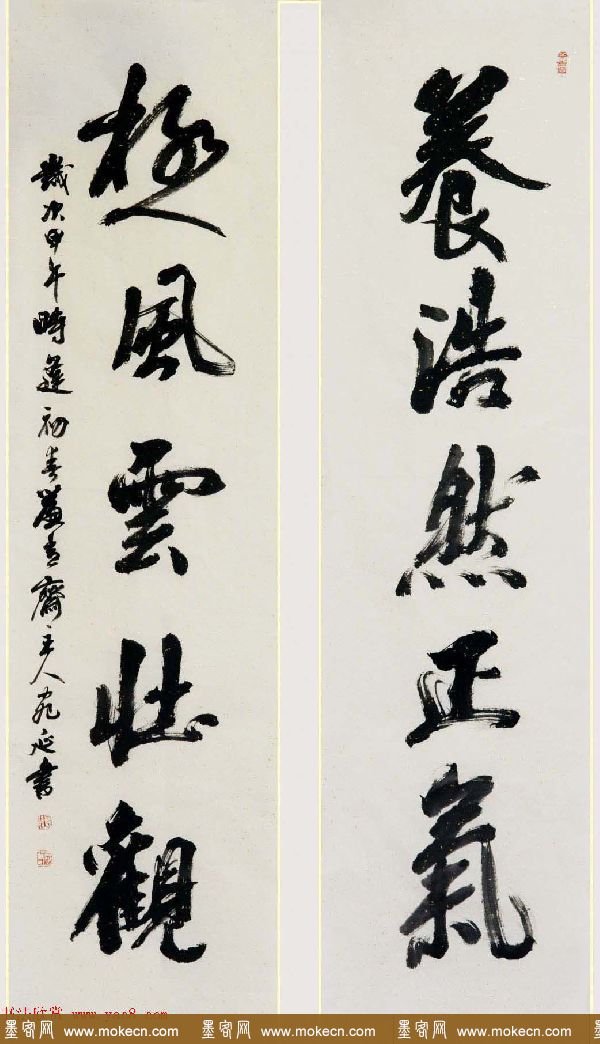 養浩然正氣
極風雲壯觀
歲次甲午時逢初春蘆青齋主人苑延書
墨客网 www.mokecn.com 墨客网 www.mokecn.com 墨客网 www.mokecn.com